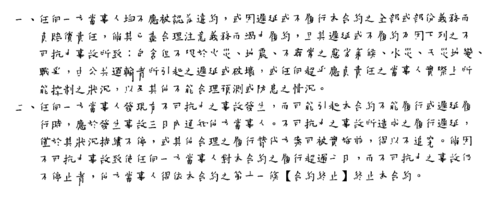 一、任何一方當事人均不應被認為違約，或因遲延或不履行本合約之全部或部份義務而
負賠償責任，倘其已盡合理注意義務而為履行，且其遲延或不履行因下列之不
可抗力事故所致：包含但不限於火災、地震、不尋常之惡劣氣候、水災、天災地變、
戰爭，由公共運輸者所引起之遲延或破壞，或任何超乎應負責任之當事人實際上所
能控制之狀況，以及其他不能合理預測或防患之情況。
二、任何一方當事人發現有不可抗力之事故發生，而可能引起本合約不能履行或遲延履
行時，應於發生事故三日內通知他方當事人。不可抗力之事故所造成之履行遲延，
僅於其狀況持續不停，或其他合理之履行替代方案可被實施前，得以不追究。倘因
不可抗力之事故致使任何一方當事人對本合約之履行超過一月，而不可抗力之事故仍
不停止者，他方當事人得依本合約之第十一條【合約終止】終止本合約。